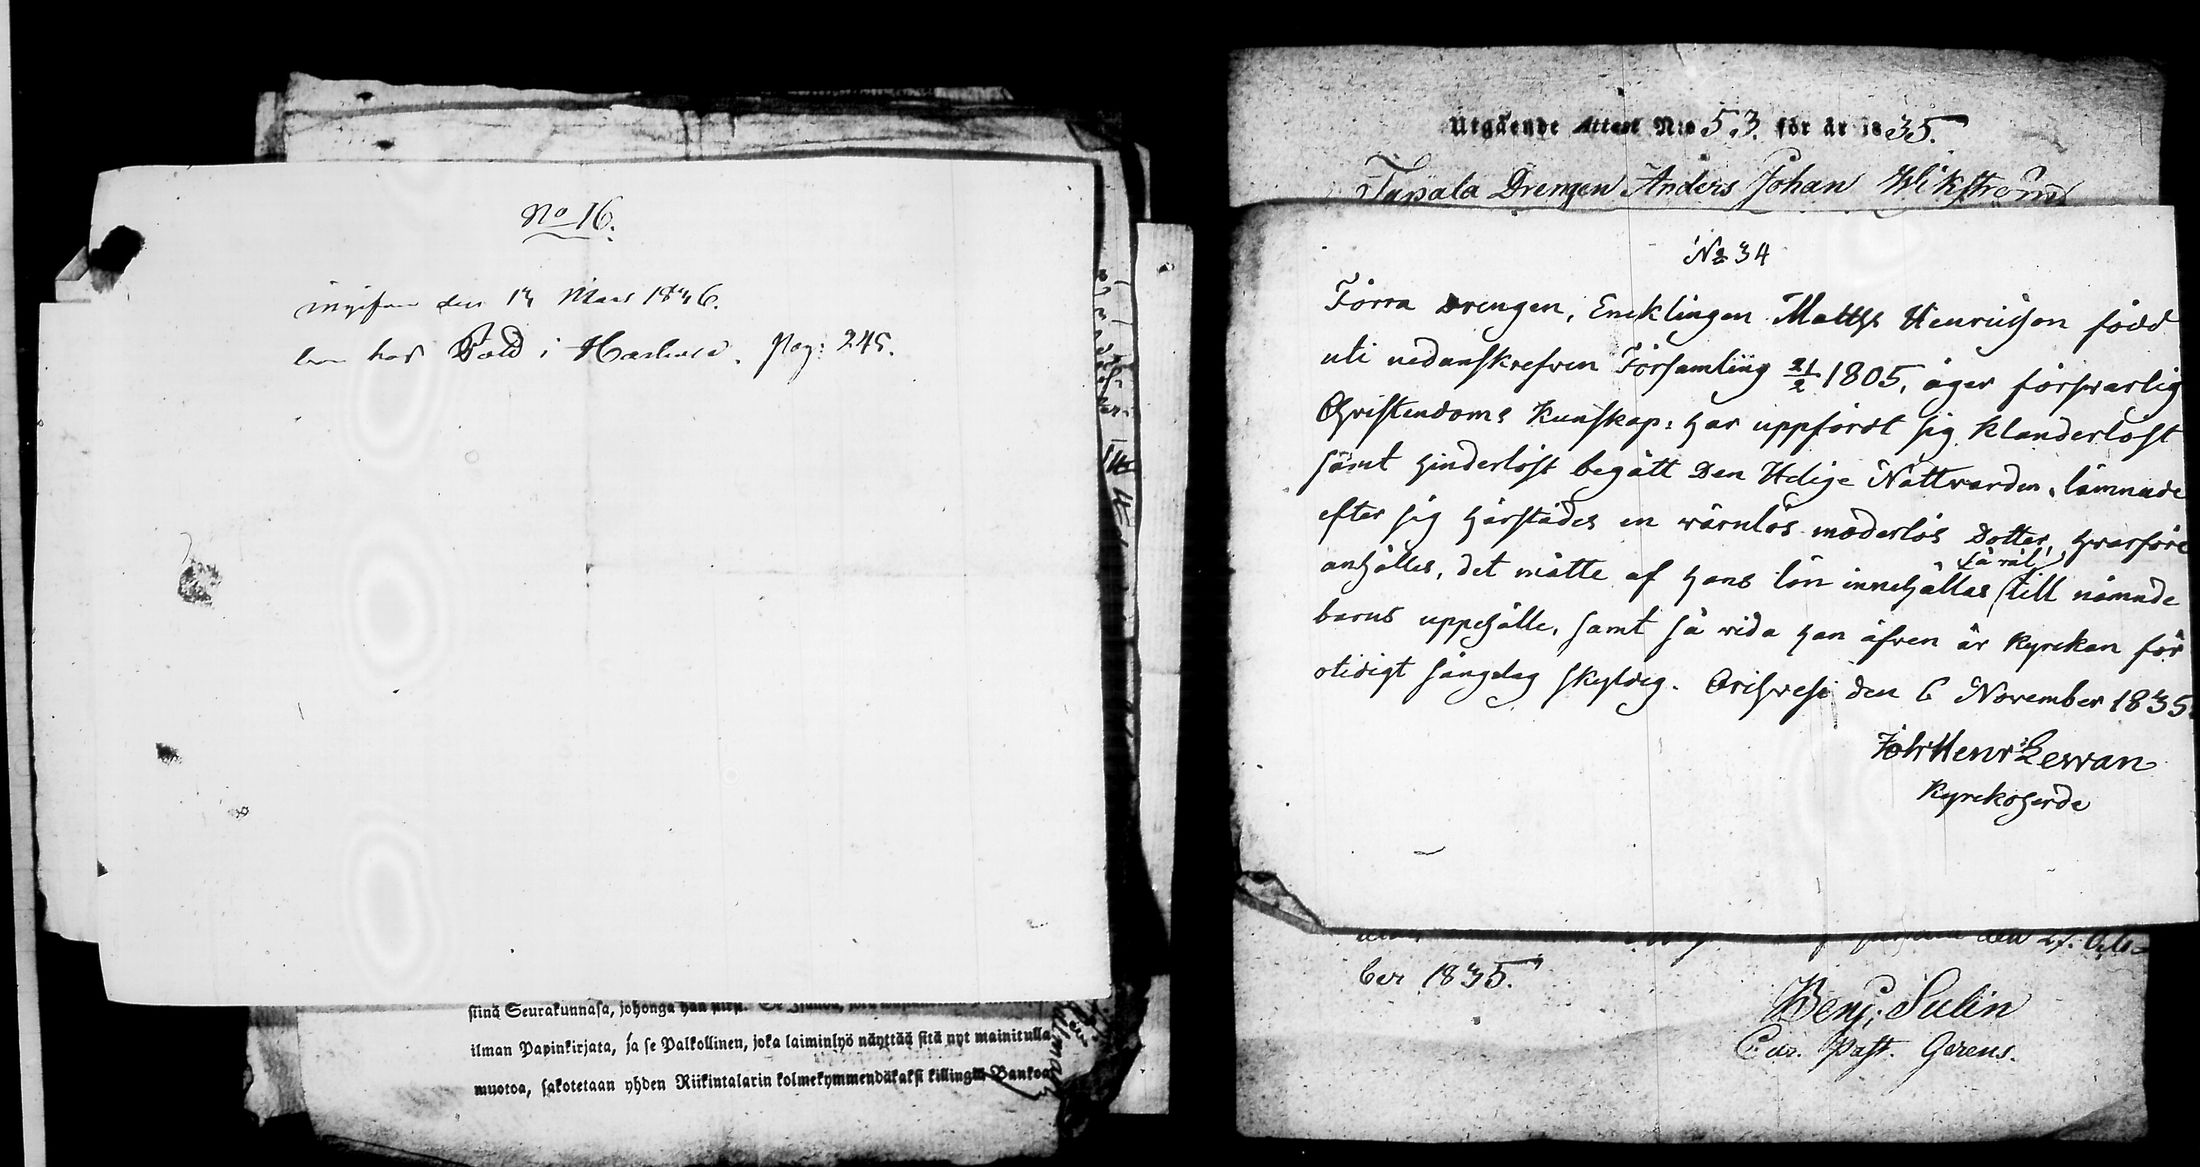 No 16.
ingifven den 14 Mars 1836.
hos Påld i Pag: 245.
siinä Seurakunnasa, johonga hän
ilman Papinkirjata, ja se Palkollinen, joka laiminlyö näyttää sitä nyt mainitulla
muotoa, sakotetaan yhden Riikintalarin kolmekymmendäkaksi killingiä Bankoa
Utgående Attest N:o 53. för år 1835.
Tupala Drengen Anders Johan Wikström
No 34
Förra Drengen, Enklingen Matts Henricsson född
uti nedanskrefven Församling 21/2 1805, äger försvarlig
Christendoms Kunskap; har uppfördt sig klanderlöst
samt hinderlöst begått Den Helige Nattvarden, lämnade
efter sig härstädes en värnlös moderlös Dotter, hvarföre
anhålles, det måtte af hans lön innehållas såväl till nämnde
barns uppehälle, samt så vida han äfven är kyrckan för
otidigt sängelag skyldig. Orihvesi den 6 November 1835.
Joh Henr Lewan
Kyrckoherde
den 27. Octo=
ber 1835.
Benj. Sulin
Cur. Past. Gerens.